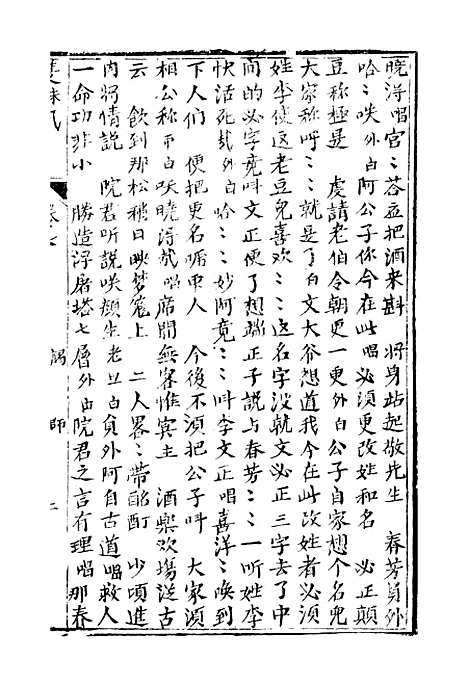 曉得唱官〻荅應把酒来斟　將身站起敬先生　春芳員外
哈〻咲外白阿公子你今在此唱必須更改姓和名　必正顛
豆称極是　䖍請老伯令朝更一更外白公子自家想个名兒
大家称呼〻〻就是了白文大爷想道我今在此改姓者必須
姓李使这老豆兒喜欢〻〻这名字沒就文必正三字去了中
间的必字竟叫文正便了想端正子説与春芳〻〻一听姓李
快活死哉外白哈〻〻妙阿竟〻〻叫李文正唱喜洋〻〻唤到
下人们　便把更名嘱衆人　今後不須把公子叫　大家須
相公称帀白呅曉淂哉唱席間無客惟賓主　酒樂欢塲送古
云　飲到那松梢日映梦窓上　二人畧〻带酩酊　少頃進
内將情説　院君听説咲顏生老旦白負外阿自古道唱救人
一命功非小　勝造浮屠塔七層外白院君之言有理唱那春
卷七
偶師
二